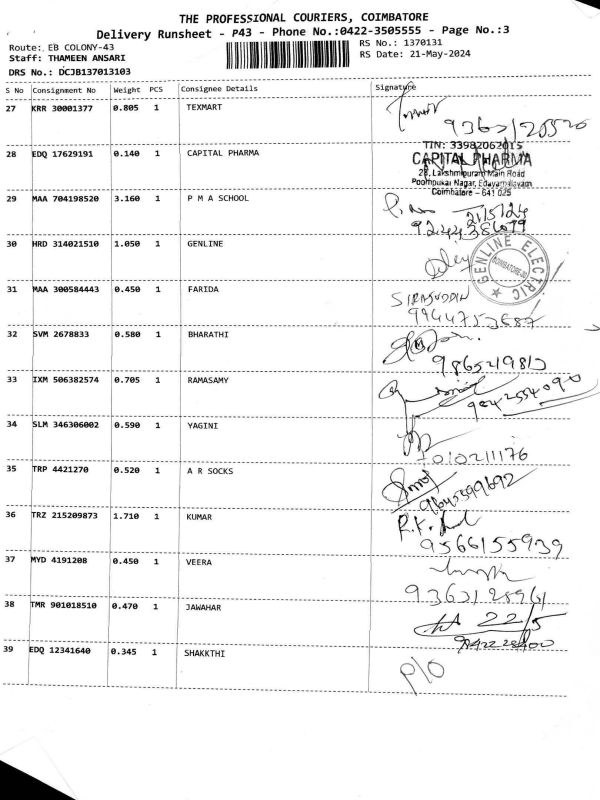 THE PROFESSIONAL COURIERS, COIMBATORE
Delivery Runsheet - P43 - Phone No.:0422-3505555 - Page No.:3
Route: EB COLONY-43
RS No.: 1370131
Staff: THAMEEN ANSARI
RS Date: 21-May-2024
DRS No.: DCJB137013103
S No Consignment No Weight PCS Consignee Details Signature
27 KRR 30001377 0.805 1 TEXMART
28 EDQ 17629191 0.140 1 CAPITAL PHARMA
TIN: 33982062015
CAPITAL PHARMA
28, Lakshmipuram Main Road
Poompukar Nagar, Edayarpalayam
Coimbatore - 641 025
29 MAA 704198520 3.160 1 P M A SCHOOL
21/5/24
30 HRD 314021510 1.050 1 GENLINE
GENLINE ELECTRIC
31 MAA 300584443 0.450 1 FARIDA
SIRAJUDDIN
32 SVM 2678833 0.580 1 BHARATHI
33 IXM 506382574 0.705 1 RAMASAMY
9842554090
34 SLM 346306002 0.590 1 YAGINI
7010211176
35 TRP 4421270 0.520 1 A R SOCKS
9645399692
36 TRZ 215209873 1.710 1 KUMAR
9566155939
37 MYD 4191208 0.450 1 VEERA
38 TMR 901018510 0.470 1 JAWAHAR
22/5
39 EDQ 12341640 0.345 1 SHAKKTHI
P/O